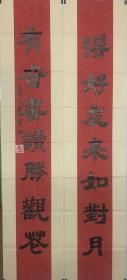 得好友来如對月
有奇書讀勝觀花